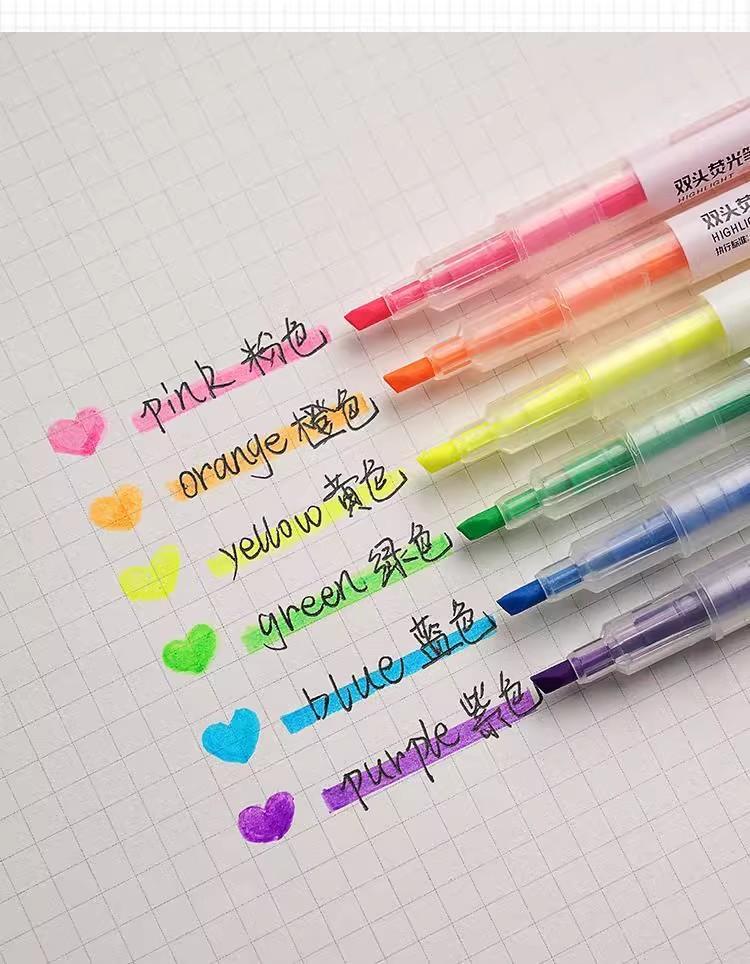 双头荧光笔
HIGHLIGHT
双头荧
HIGHLI
执行标准:
pink 粉色
orange 橙色
yellow 黄色
green 绿色
blue 蓝色
purple 紫色